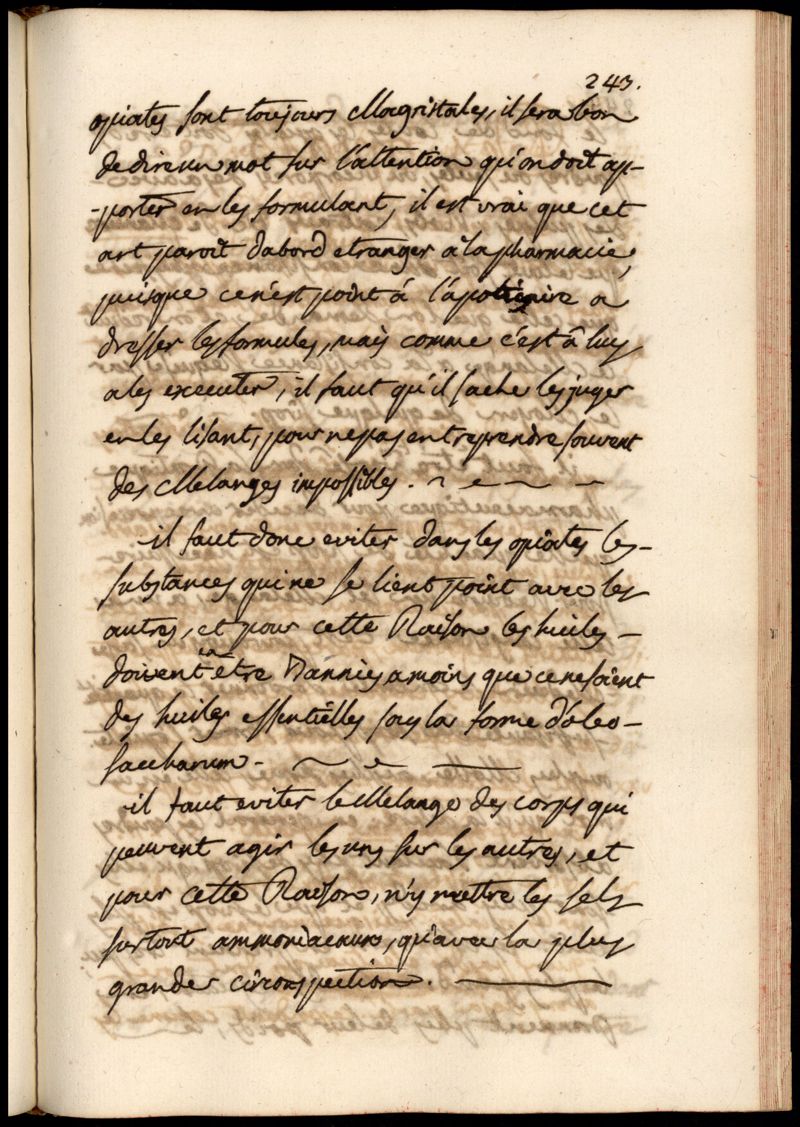 243.
opiates sont toujours Magistrales, il sera bon
de dire un mot sur l'attention qu'on doit ap-
-porter en les formulant, il est vrai que cet
art paroit dabord etranger a la pharmacie,
puisque ce n'est point á l'apoticaire a
dresser les formules, mais comme c'est á luy
a les executer, il faut qu'il sache les juger
en les lisant, pour ne pas entreprendre souvent
des Melanges impossibles.
il faut donc eviter dans les opiates les
substances qui ne se lient point avec les
autres, et pour cette Raison les huiles
doivent en être Bannies a moins que ce ne soient
des huiles essentielles sous la forme d'oleo-
saccharum.
il faut eviter le Melange des corps qui
peuvent agir les uns sur les autres, et
pour cette Raison, n'y mettre les sels
surtout ammoniacaux, qu'avec la plus
grande circonspection.